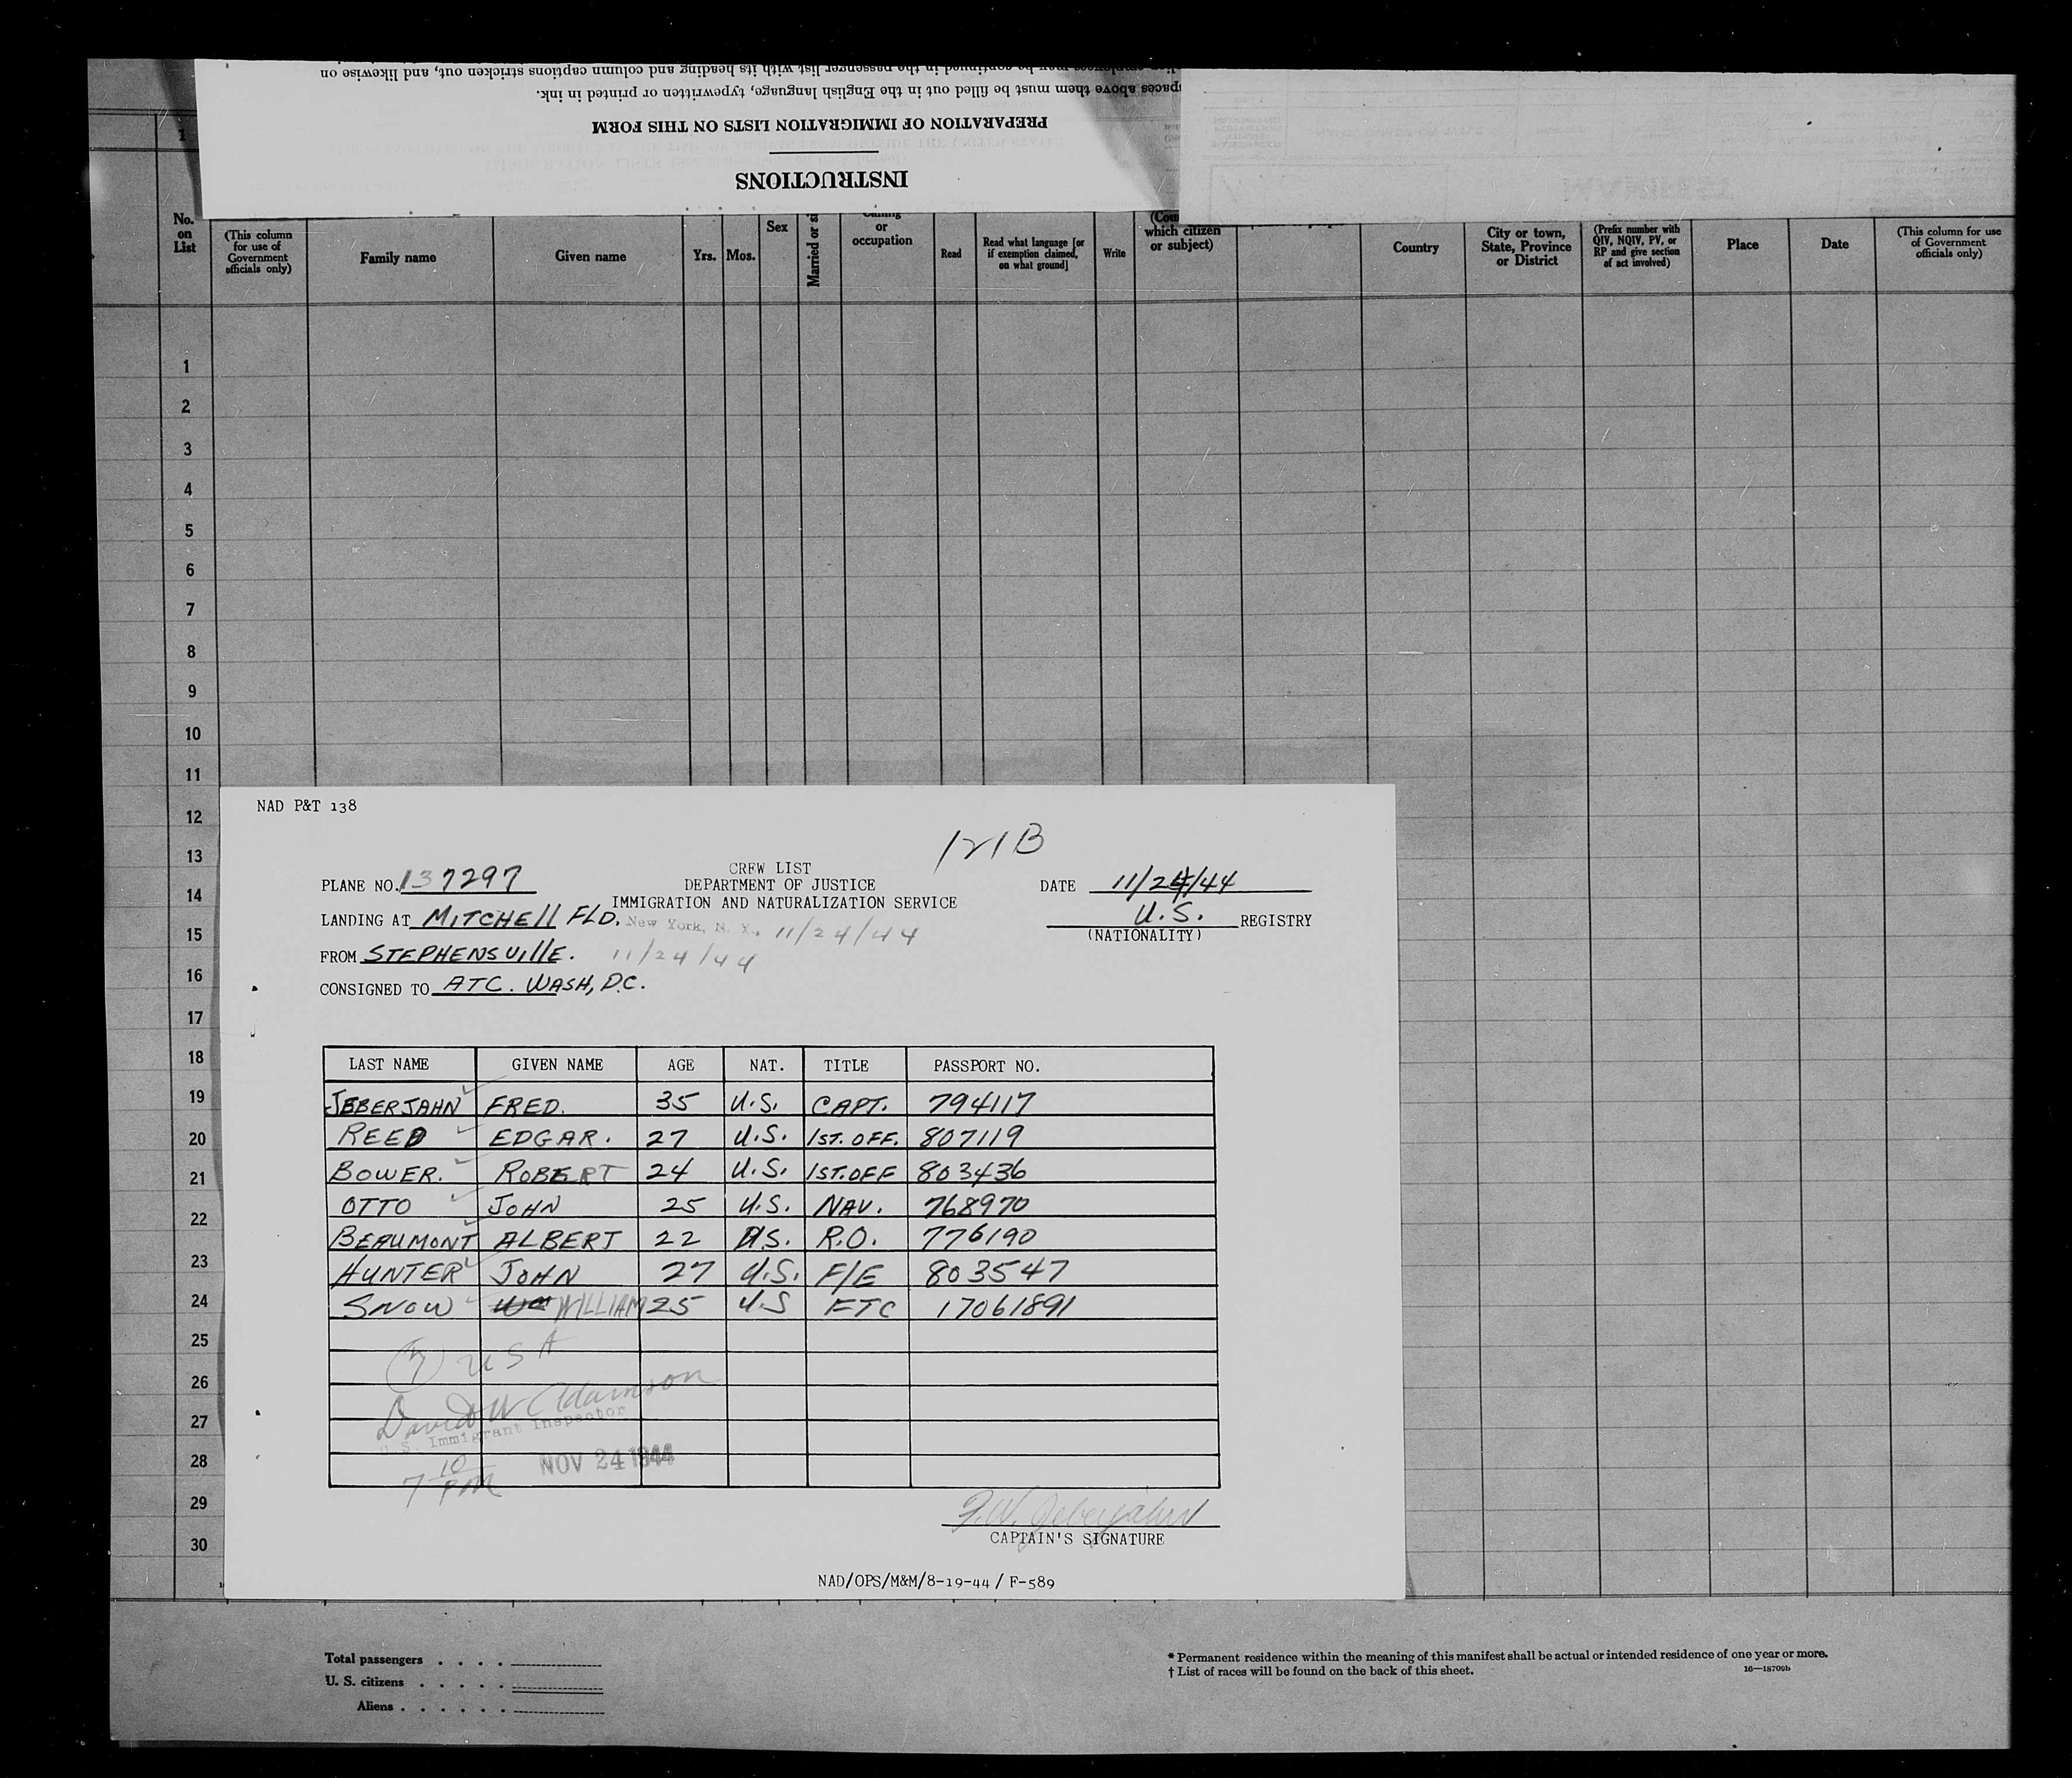 dien employees may be continued in the passenger list with its heading and column captions stricken out, and likewise on
spaces above them must be filled out in the English language, typewritten or printed in ink.
PREPARATION OF IMMIGRATION LISTS ON THIS FORM
INSTRUCTIONS
1
No. on List
(This column for use of Government officials only)
Family name
Given name
Yrs.
Mos.
Sex
Married or
or occupation
Read
Read what language [or if exemption claimed, on what ground]
Write
which citizen or subject)
Country
City or town, State, Province or District
(Prefix number with QIV, NQIV, PV, or RP and give section of act involved)
Place
Date
(This column for use of Government officials only)
1
2
3
4
5
6
7
8
9
10
11
12
13
14
15
16
17
18
19
20
21
22
23
24
25
26
27
28
29
30
NAD P&T 138
121B
CREW LIST
PLANE NO. 137297 DEPARTMENT OF JUSTICE DATE 11/24/44
IMMIGRATION AND NATURALIZATION SERVICE
LANDING AT MITCHELL FLD. New York, N. Y., 11/24/44 U.S. REGISTRY
(NATIONALITY)
FROM STEPHENSVILLE. 11/24/44
CONSIGNED TO ATC. WASH, D.C.
LAST NAME GIVEN NAME AGE NAT. TITLE PASSPORT NO.
JEBERJAHN FRED. 35 U.S. CAPT. 794117
REED EDGAR. 27 U.S. 1ST. OFF. 807119
BOWER. ROBERT 24 U.S. 1ST.OFF 803436
OTTO JOHN 25 U.S. NAV. 768970
BEAUMONT ALBERT 22 U.S. R.O. 776190
HUNTER JOHN 27 U.S. F/E 803547
SNOW Wm WILLIAM 25 U.S FTC 17061891
(7) USA
David W Adamson
U. S. Immigrant Inspector
7 10 PM NOV 24 1944
F.W. Jeberjahn
CAPTAIN'S SIGNATURE
NAD/OPS/M&M/8-19-44 / F-589
Total passengers . . . .
U. S. citizens . . . . .
Aliens . . . . . .
* Permanent residence within the meaning of this manifest shall be actual or intended residence of one year or more.
† List of races will be found on the back of this sheet.
16—18709b